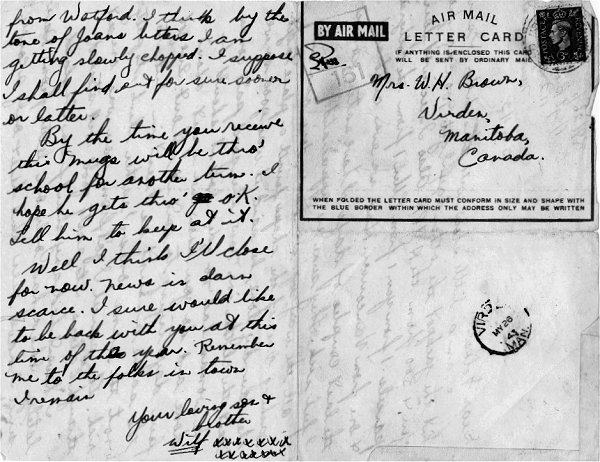 from Watford. I think by the
tone of Joans letters I am
getting slowly chopped. I suppose
I shall find out for sure sooner
or latter.
By the time you receive
this mugs will be thro'
school for another term. I
hope he gets thro' OK.
Tell him to keep at it.
Well I think I'll close
for now. news is darn
scarce. I sure would like
to be back with you at this
time of the year. Remember
me to the folks in town
I remain
Your loving son &
brother
Wilf xxxxxxx
xxxxxxx
BY AIR MAIL
AIR MAIL
LETTER CARD
IF ANYTHING IS ENCLOSED THIS CARD
WILL BE SENT BY ORDINARY MAIL
151
Mrs. W. H. Brown,
Virden,
Manitoba,
Canada.
WHEN FOLDED THE LETTER CARD MUST CONFORM IN SIZE AND SHAPE WITH
THE BLUE BORDER WITHIN WHICH THE ADDRESS ONLY MAY BE WRITTEN
MY 26
43
MAN.